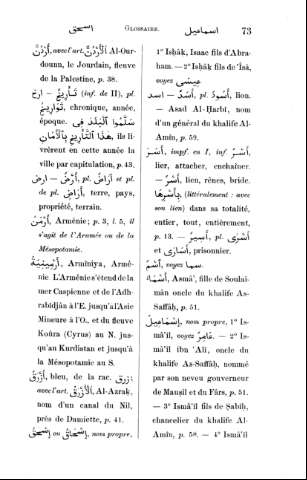 إسحق GLOSSAIRE. اسماعيل 73
أُرْدُنّ, avec l'art. الأُرْدُنّ Al-Our-
dounn, le Jourdain, fleuve
de la Palestine, p. 38.
ارخ — تَأْرِيخ (inf. de II), pl.
تَوَارِيخ, chronique, année,
époque. سَلَّمُوا البَلَدَ فى
هٰذا التَّأْرِيخِ بِالأَمَانِ, ils li-
vrèrent en cette année la
ville par capitulation, p. 43.
ارض — أَرْض, pl. أَرَاضٍ et pl.
de pl. أَرَاضِى, terre, pays,
propriété, terrain.
أَرْمَن, Arménie; p. 3, l. 5, il
s'agit de l'Aramée ou de la
Mésopotamie.
أَرْمِينِيَة, Armîniya, Armé-
nie. L'Arménie s'étend de la
mer Caspienne et de l'Adh-
rabîdjân à l'E. jusqu'à l'Asie
Mineure à l'O., et du fleuve
Koûra (Cyrus) au N. jus-
qu'au Kurdistan et jusqu'à
la Mésopotamie au S.
أَزْرَق, bleu, de la rac. زرق,
avec l'art. الأَزْرَق, Al-Azraḳ,
nom d'un canal du Nil,
près de Damiette, p. 41.
إِسْحَاق ou إِسْحٰق, nom propre,
1° Isḥâḳ, Isaac fils d'Abra-
ham. — 2° Isḥâḳ fils de 'Îsâ,
voyez عِيسَى.
اسد — أَسَد, pl. أُسُود, lion.
— Asad Al-Ḥarbî, nom
d'un général du khalife Al-
Amîn, p. 59.
أَسَرَ, impf. en I, inf. أَسْر,
lier, attacher, enchaîner.
— أَسْر, lien, rênes, bride.
بِأَسْرِهَا, (littéralement : avec
son lien) dans sa totalité,
entier, tout, entièrement,
p. 13. — أَسِير, pl. أَسْرَى
et أَسَارَى, prisonnier.
اسم, voyez سما.
أَسْمَاء, Asmâ', fille de Soulai-
mân oncle du khalife As-
Saffâḥ, p. 51.
إِسْمَاعِيل, nom propre, 1° Is-
mâ'îl, voyez عَامِر. — 2° Is-
mâ'îl ibn 'Alî, oncle du
khalife As-Saffâḥ, nommé
par son neveu gouverneur
de Mauṣil et du Fârs, p. 51.
— 3° Ismâ'îl fils de Ṣabîḥ,
chancelier du khalife Al-
Amîn, p. 58. — 4° Ismâ'îl